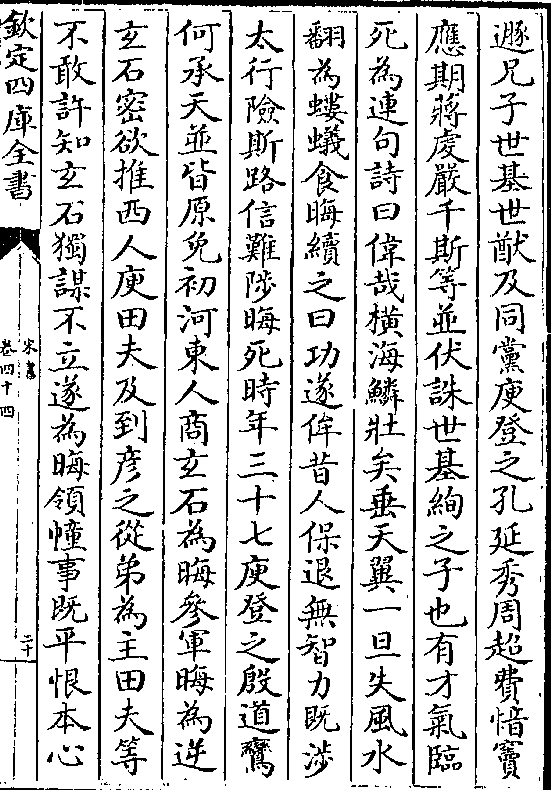 遯兄子世基世猷及同黨庾登之孔延秀周超費愔竇
應期蔣虔嚴千斯等並伏誅世基絢之子也有才氣臨
死為連句詩曰偉哉橫海鱗壯矣垂天翼一旦失風水
翻為螻蟻食晦續之曰功遂侔昔人保退無智力既涉
太行險斯路信難陟晦死時年三十七庾登之殷道鸞
何承天並皆原免初河東人商玄石為晦參軍晦為逆
玄石密欲推西人庾田夫及到彦之從弟為主田夫等
不敢許知玄石獨謀不立遂為晦領幢事既平恨本心
欽定四庫全書
宋書
卷四十四
二十